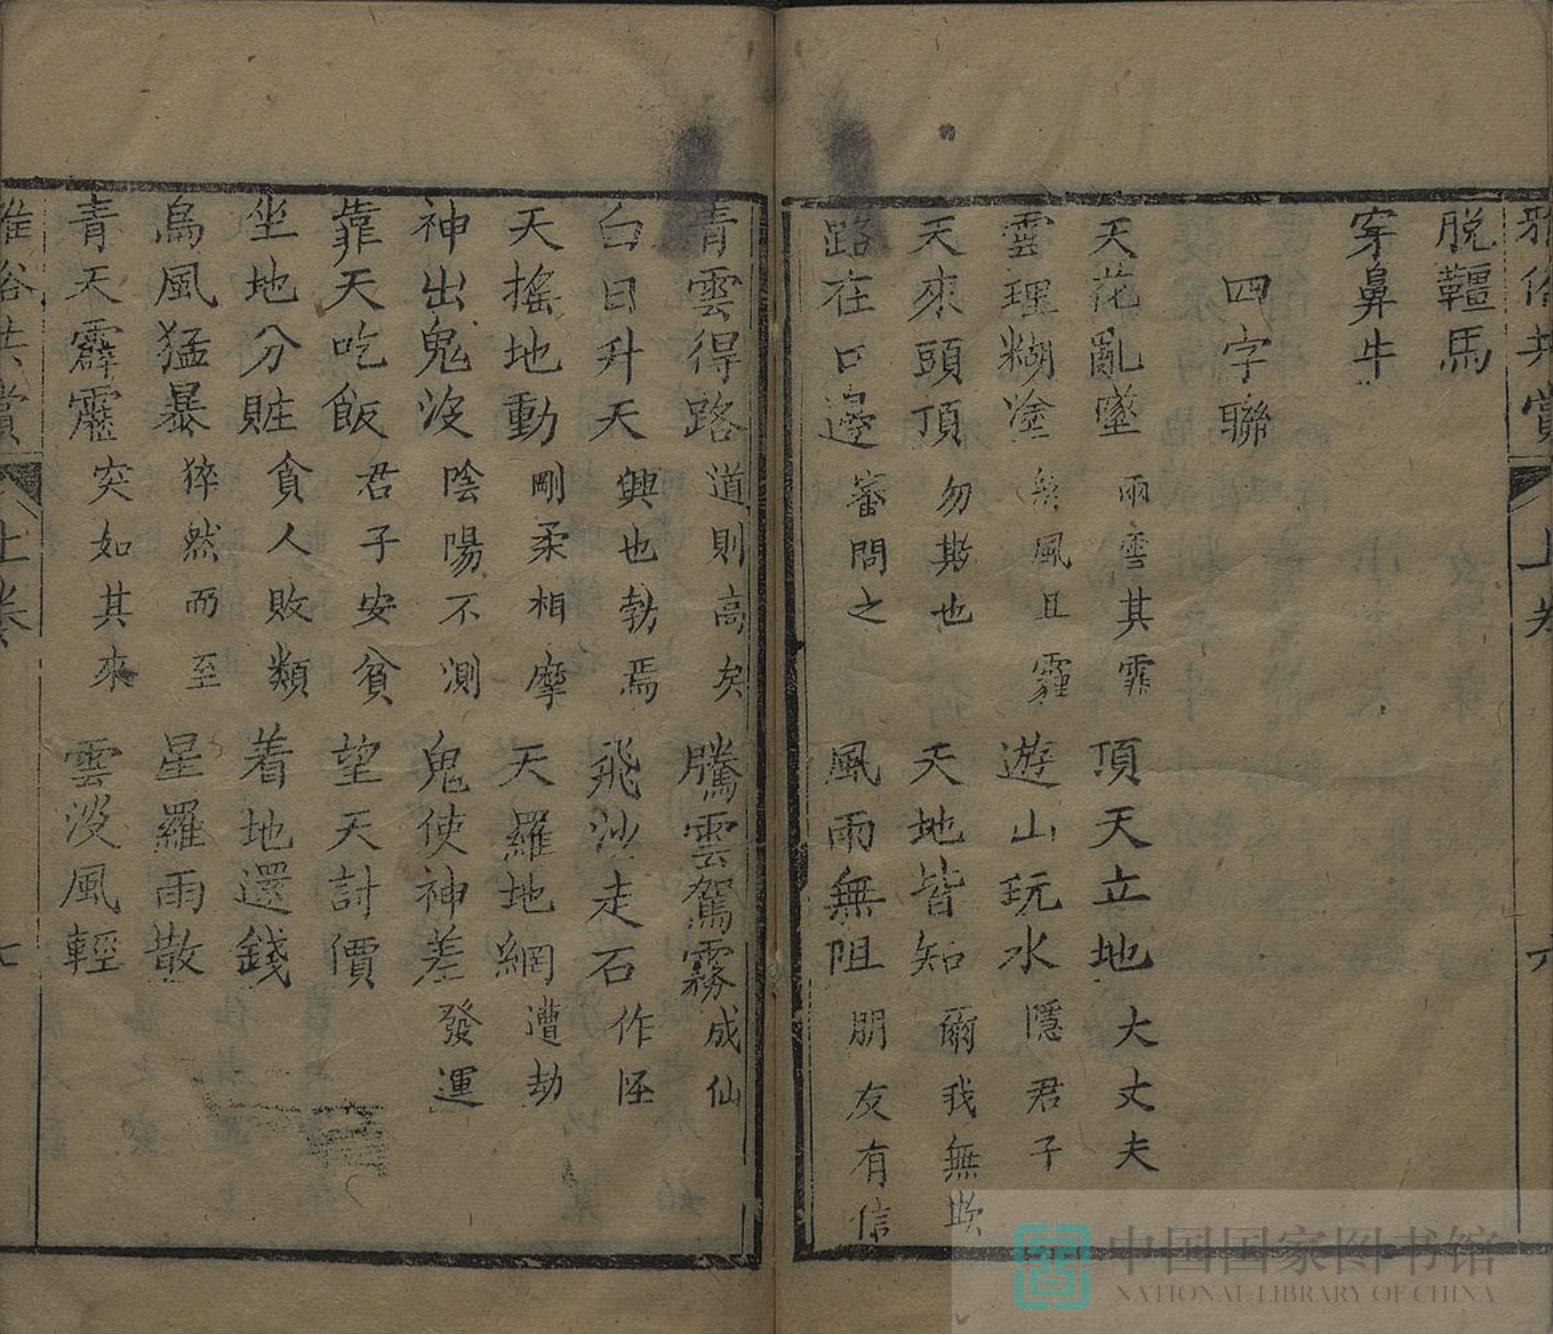 雅俗共賞 上卷 六
脱韁馬
穿鼻牛
四字聯
天花亂墜 雨雪其霏 頂天立地 大丈夫
雲理糊塗 終風且霾 遊山玩水 隱君子
天來頭頂 勿欺也 天地皆知 爾我無欺
路在口邊 審問之 風雨無阻 朋友有信
青雲得路 道則高矣 騰雲駕霧 成仙
白日升天 興也勃焉 飛沙走石 作怪
天搖地動 剛柔相摩 天羅地網 遭劫
神出鬼沒 陰陽不測 鬼使神差 發運
靠天吃飯 君子安貧 望天討價
坐地分賍 貪人敗類 着地還錢
烏風猛暴 猝然而至 星羅雨散
青天霹靂 突如其來 雲沒風輕
雅俗共賞 上卷 七
中国国家图书馆
NATIONAL LIBRARY OF CHINA